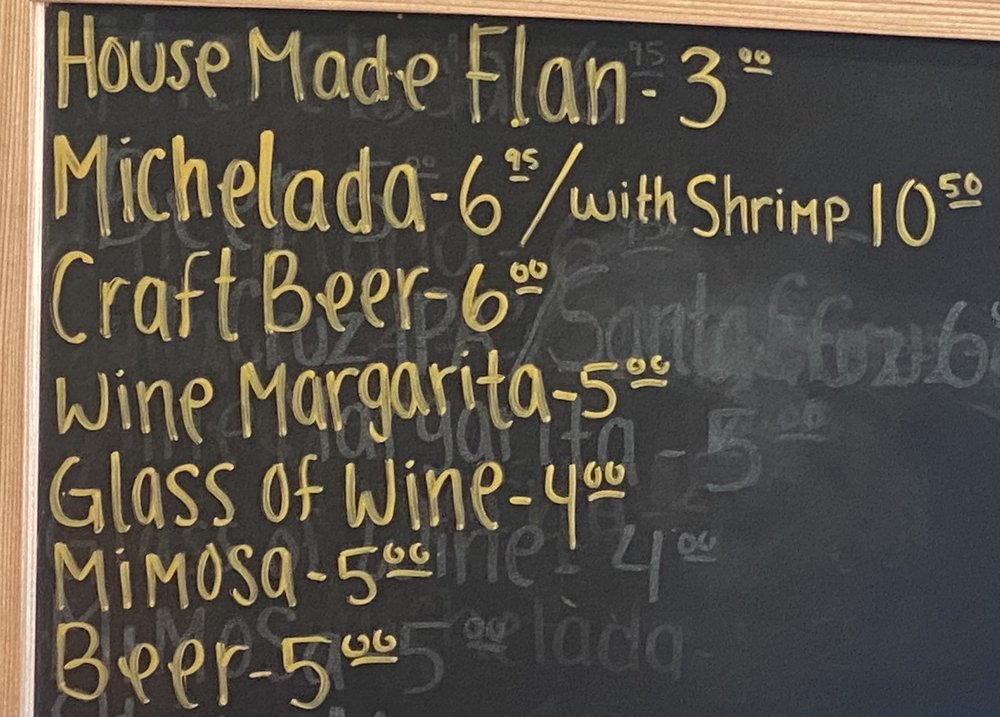 House Made Flan - 3 00
Michelada - 6 95 / with Shrimp 10 50
Craft Beer - 6 00
Wine Margarita - 5 00
Glass of Wine - 4 00
Mimosa - 5 00
Beer - 5 00